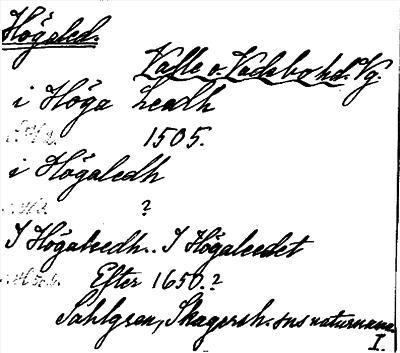 Högaled.
Valle o. Vadsbo hd. Vg.
i Höga Leedh
1505.
i Högaledh
?
I Högaleedh.. I Högaleedet
Efter 1650.?
Sahlgren, Skagersh. sns naturnamn
I.